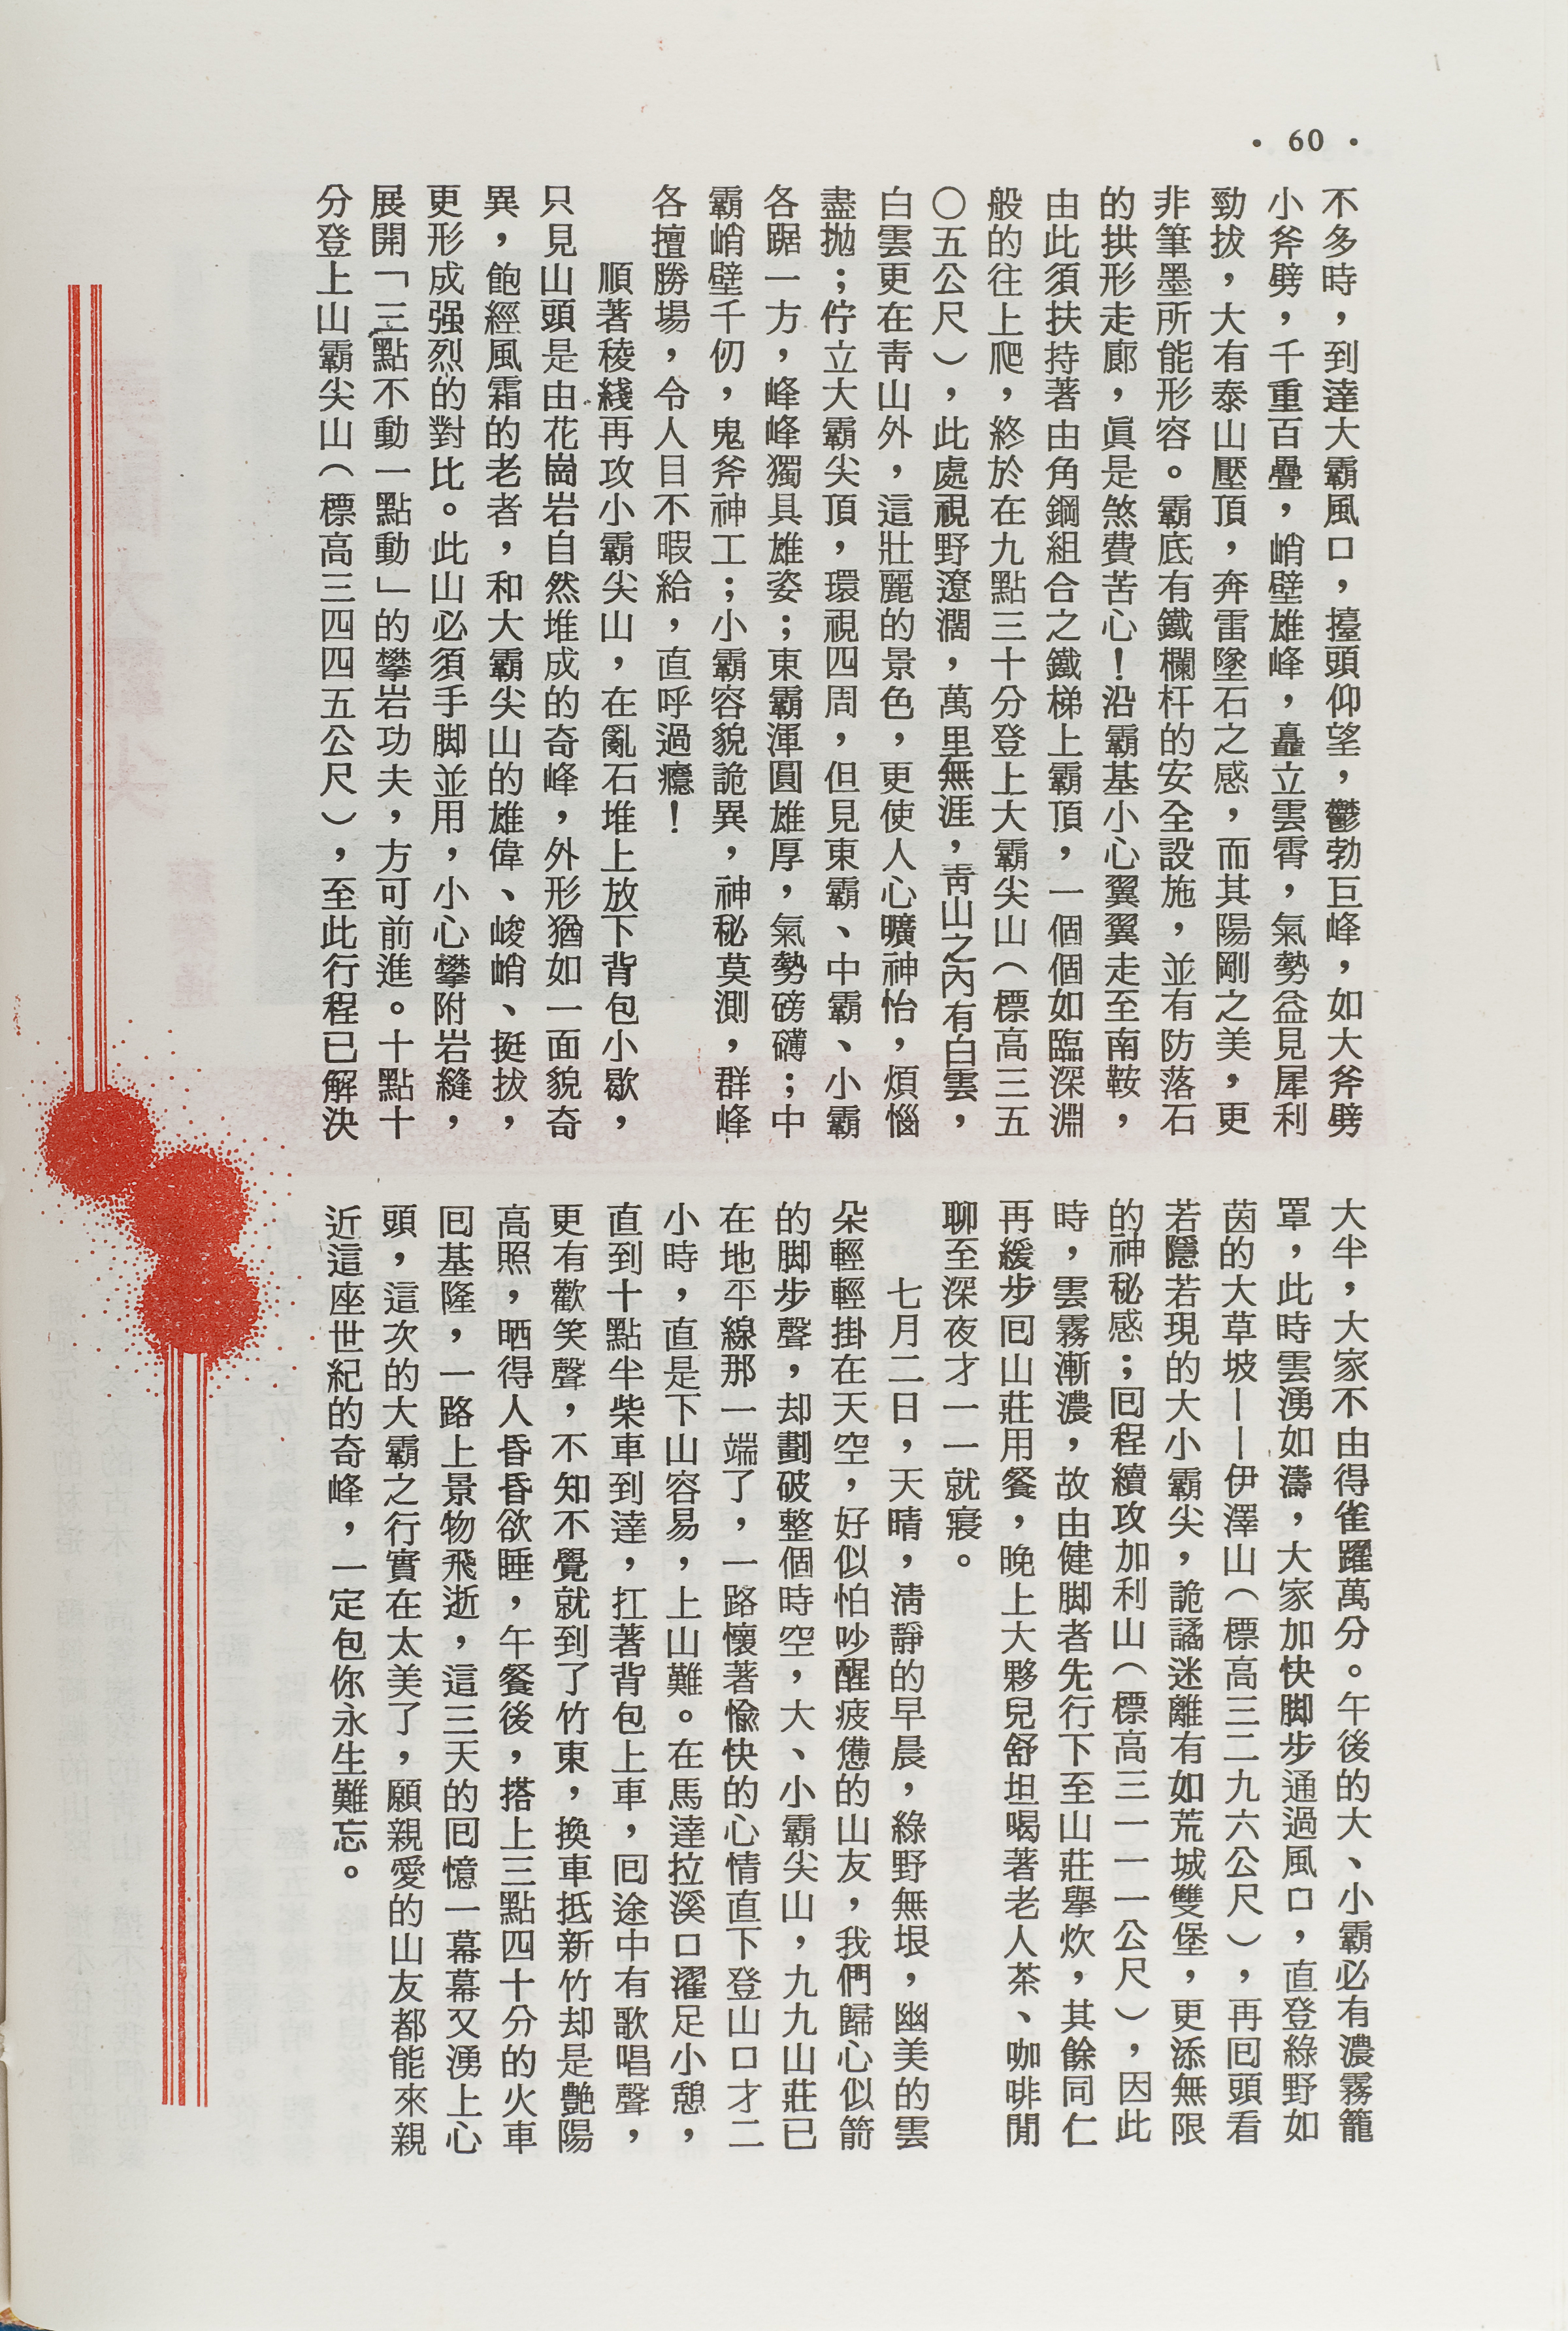 • 60 •
不多時，到達大霸風口，擡頭仰望，鬱勃巨峰，如大斧劈
小斧劈，千重百疊，峭壁雄峰，矗立雲霄，氣勢益見犀利
勁拔，大有泰山壓頂，奔雷墜石之感，而其陽剛之美，更
非筆墨所能形容。霸底有鐵欄杆的安全設施，並有防落石
的拱形走廊，眞是煞費苦心！沿霸基小心翼翼走至南鞍，
由此須扶持著由角鋼組合之鐵梯上霸頂，一個個如臨深淵
般的往上爬，終於在九點三十分登上大霸尖山（標高三五
〇五公尺），此處視野遼濶，萬里無涯，靑山之內有白雲，
白雲更在靑山外，這壯麗的景色，更使人心曠神怡，煩惱
盡拋；佇立大霸尖頂，環視四周，但見東霸、中霸、小霸
各踞一方，峰峰獨具雄姿；東霸渾圓雄厚，氣勢磅礴；中
霸峭壁千仞，鬼斧神工；小霸容貌詭異，神秘莫測，群峰
各擅勝場，令人目不暇給，直呼過癮！
順著稜綫再攻小霸尖山，在亂石堆上放下背包小歇，
只見山頭是由花崗岩自然堆成的奇峰，外形猶如一面貌奇
異，飽經風霜的老者，和大霸尖山的雄偉、峻峭、挺拔，
更形成强烈的對比。此山必須手脚並用，小心攀附岩縫，
展開「三點不動一點動」的攀岩功夫，方可前進。十點十
分登上山霸尖山（標高三四四五公尺），至此行程已解決
大半，大家不由得雀躍萬分。午後的大、小霸必有濃霧籠
罩，此時雲湧如濤，大家加快脚步通過風口，直登綠野如
茵的大草坡——伊澤山（標高三二九六公尺），再囘頭看
若隱若現的大小霸尖，詭譎迷離有如荒城雙堡，更添無限
的神秘感；囘程續攻加利山（標高三一一一公尺），因此
時，雲霧漸濃，故由健脚者先行下至山莊擧炊，其餘同仁
再緩步囘山莊用餐，晚上大夥兒舒坦喝著老人茶、咖啡閒
聊至深夜才一一就寢。
七月二日，天晴，淸靜的早晨，綠野無垠，幽美的雲
朵輕輕掛在天空，好似怕吵醒疲憊的山友，我們歸心似箭
的脚步聲，却劃破整個時空，大、小霸尖山，九九山莊已
在地平線那一端了，一路懷著愉快的心情直下登山口才二
小時，直是下山容易，上山難。在馬達拉溪口濯足小憩，
直到十點半柴車到達，扛著背包上車，囘途中有歌唱聲，
更有歡笑聲，不知不覺就到了竹東，換車抵新竹却是艷陽
高照，晒得人昏昏欲睡，午餐後，搭上三點四十分的火車
囘基隆，一路上景物飛逝，這三天的囘憶一幕幕又湧上心
頭，這次的大霸之行實在太美了，願親愛的山友都能來親
近這座世紀的奇峰，一定包你永生難忘。